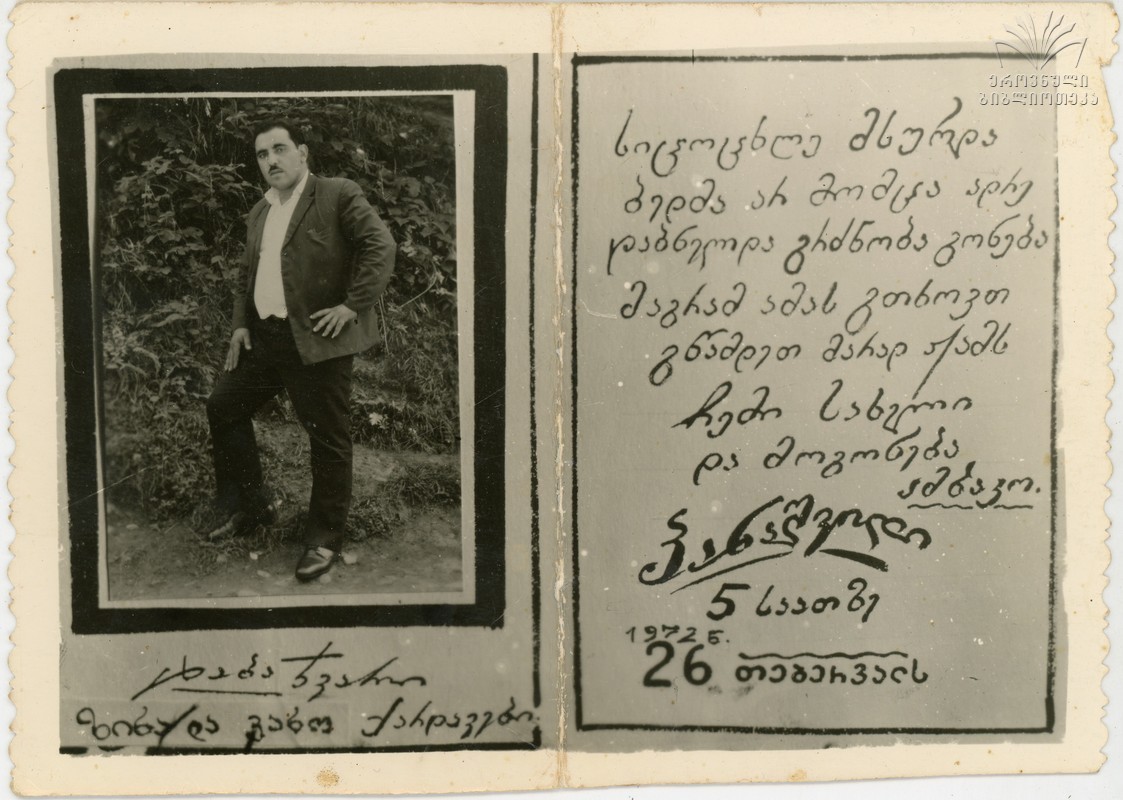 ეროვნული
ბიბლიოთეკა
ქარდავები
სიცოცხლე მსურდა
ბედმა არ მომცა ადრე
დაბნელდა გრძნობა გონება
მაგრამ ამას გთხოვთ
გწამდეთ მარად ჟამს
ჩემი სახელი
და მოგონება
პანაშვიდი
5 საათზე
1972 წ.
26 თებერვალს